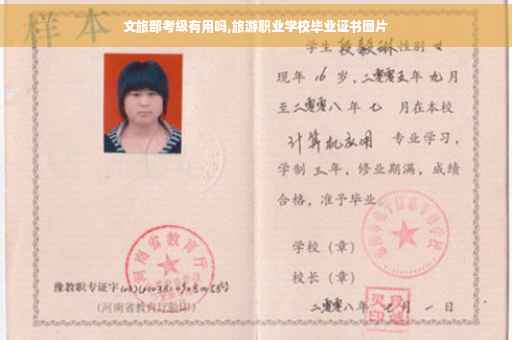 文旅部考级有用吗,旅游职业学校毕业证书图片
样本
学生段毅琳性别女
现年16岁,二零零五年九月
至二零零八年七 月在本校
计算机应用 专业学习,
学制三年,修业期满,成绩
合格,准予毕业
学校(章)
校长(章)
二零零八年七月一日
河南省教育厅
豫教职专证字
(河南省教育厅验印)